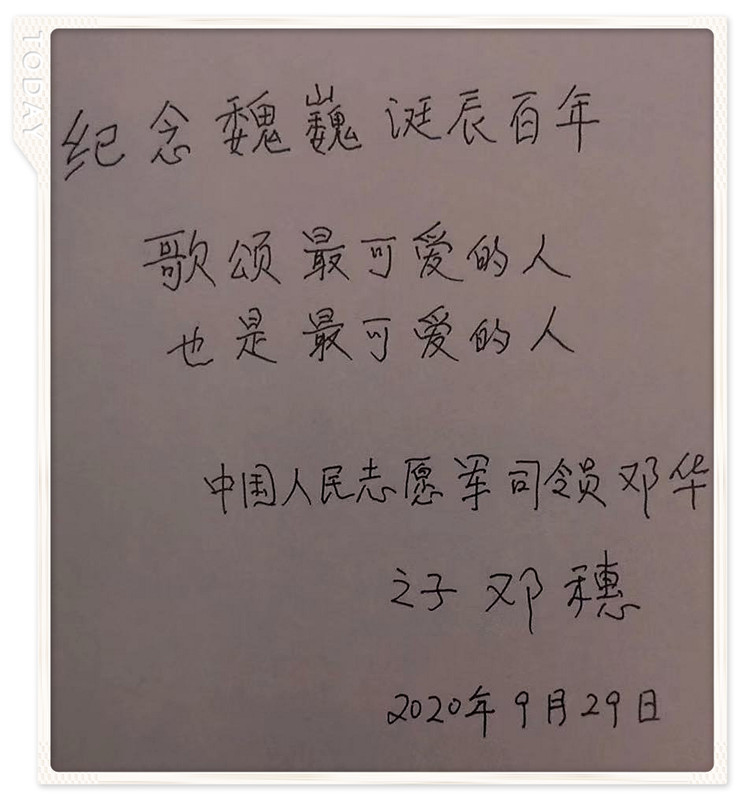 TODAY
纪念魏巍诞辰百年
歌颂最可爱的人
也是最可爱的人
中国人民志愿军司令员邓华
之子邓穗
2020年9月29日